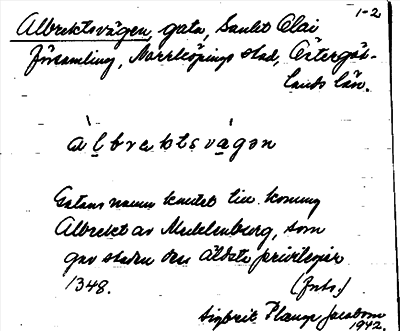 1-2
Albrektsvägen, gata, Sankt Olai
församling, Norrköpings stad, Östergöt-
lands län.
àlbrektsvägen
Gatans namn knutet till konung
Albrekt av Mecklenburg, som
gav staden dess äldsta privilegier
1348.
(Jnls.)
Sigbrit Plange Jacobson
1942.